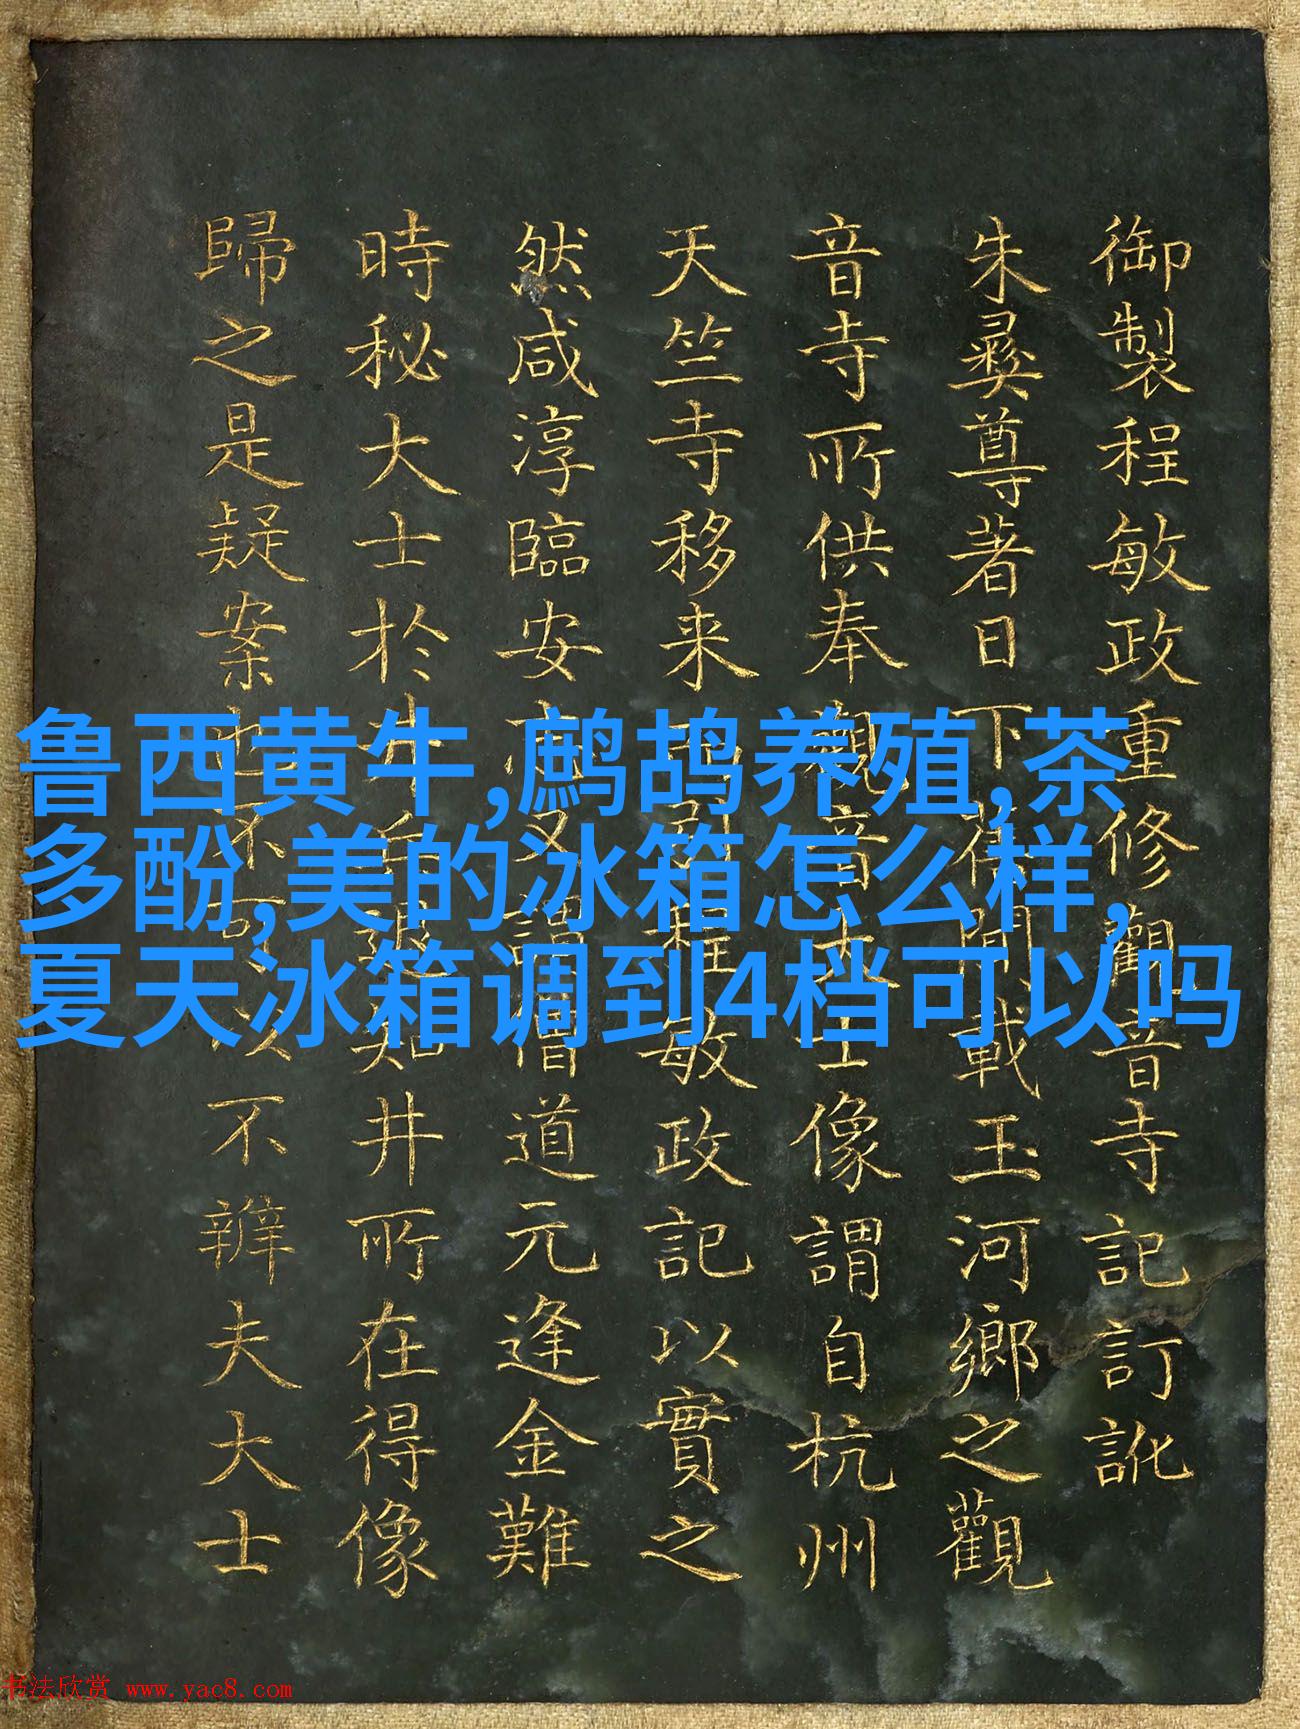 御製程敏政重修觀音寺記訂訛
朱彞尊著日下舊聞載玉河鄉之觀
音寺所供奉觀音大士像謂自杭州
天竺寺移来且引程敏政記以實之
然咸淳臨安志又謂僧道元逢金難
時秘大士於井知井所在得像
歸之是疑案也不可以不辨夫大士
鲁西黄牛,鹧鸪养殖,茶
多酚,美的冰箱怎么样,
夏天冰箱调到4档可以吗
书法欣赏 www.yac8.com